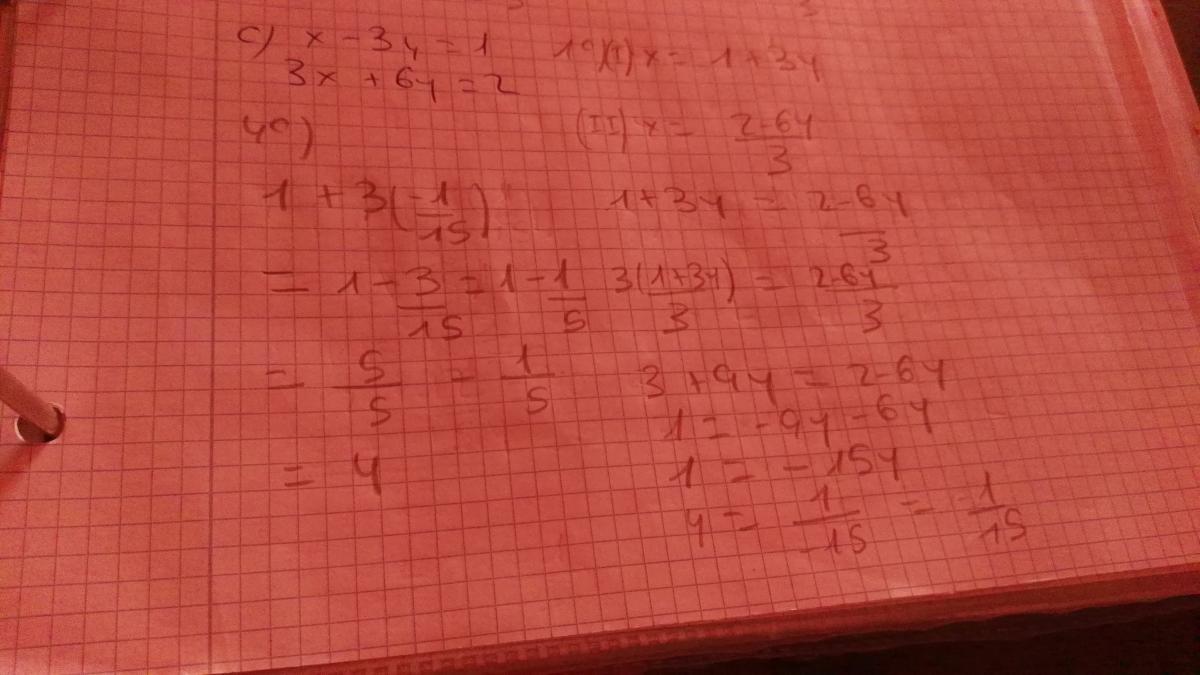 c) x - 3y = 1
3x + 6y = 2
1°) (I) x = 1 + 3y
(II) x = 2-6y/3
1+3y = 2-6y/3
3(1+3y)/3 = 2-6y/3
3 + 9y = 2-6y
1 = -9y - 6y
1 = -15y
y = 1/-15 = -1/15
4°)
1 + 3(-1/15)
= 1 - 3/15 = 1 - 1/5
= 5/5 = 1/5
= 4